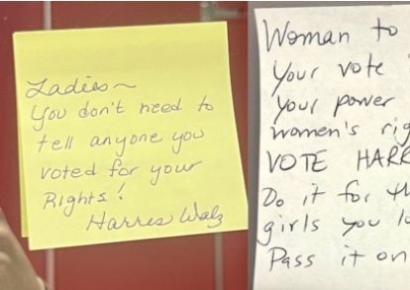 Ladies~
You don't need to
tell anyone you
voted for your
Rights!
Harris Walz
Woman to
Your vote
Your power
women's rig
VOTE HARR
Do it for th
girls you lo
Pass it on